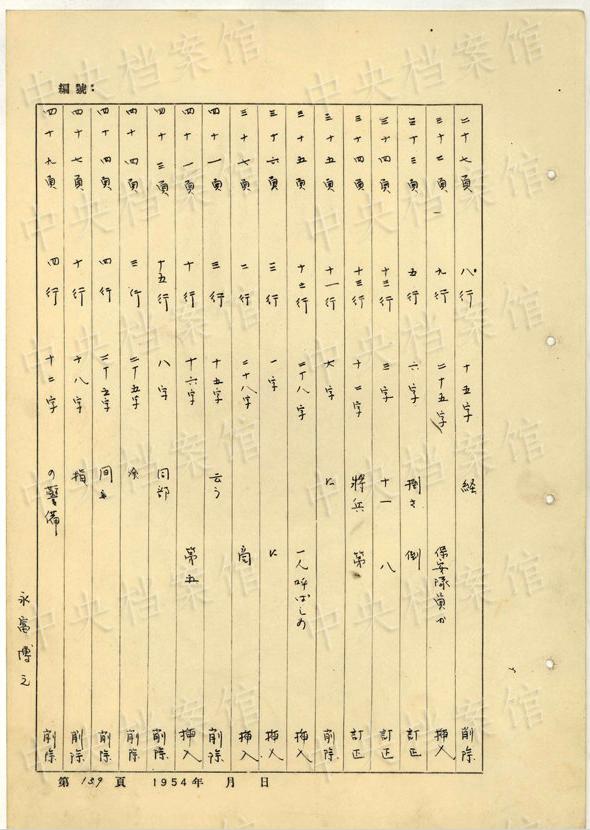 編號：
二十七頁 八行 十五字 経 削除
三十二頁 九行 二十五字 保安隊員が 挿入
三十三頁 五行 六字 倒 訂正
三十四頁 十三行 三字 十一 八 訂正
三十四頁 十三行 十二字 将兵 第 訂正
三十五頁 十一行 六字 に 削除
三十五頁 十三行 二十八字 一人呼ばしめ 挿入
三十六頁 三行 一字 に 挿入
三十七頁 二行 二十八字 高 挿入
四十一頁 三行 十五字 云う 削除
四十一頁 十行 十六字 第五 挿入
四十三頁 十五行 八字 同部 削除
四十四頁 三行 二十五字 削除
四十四頁 四行 二十五字 削除
四十七頁 十行 十八字 指 削除
四十九頁 四行 十二字 の警備 削除
永富博之
第 139 頁 1954年 月 日
中央档案馆